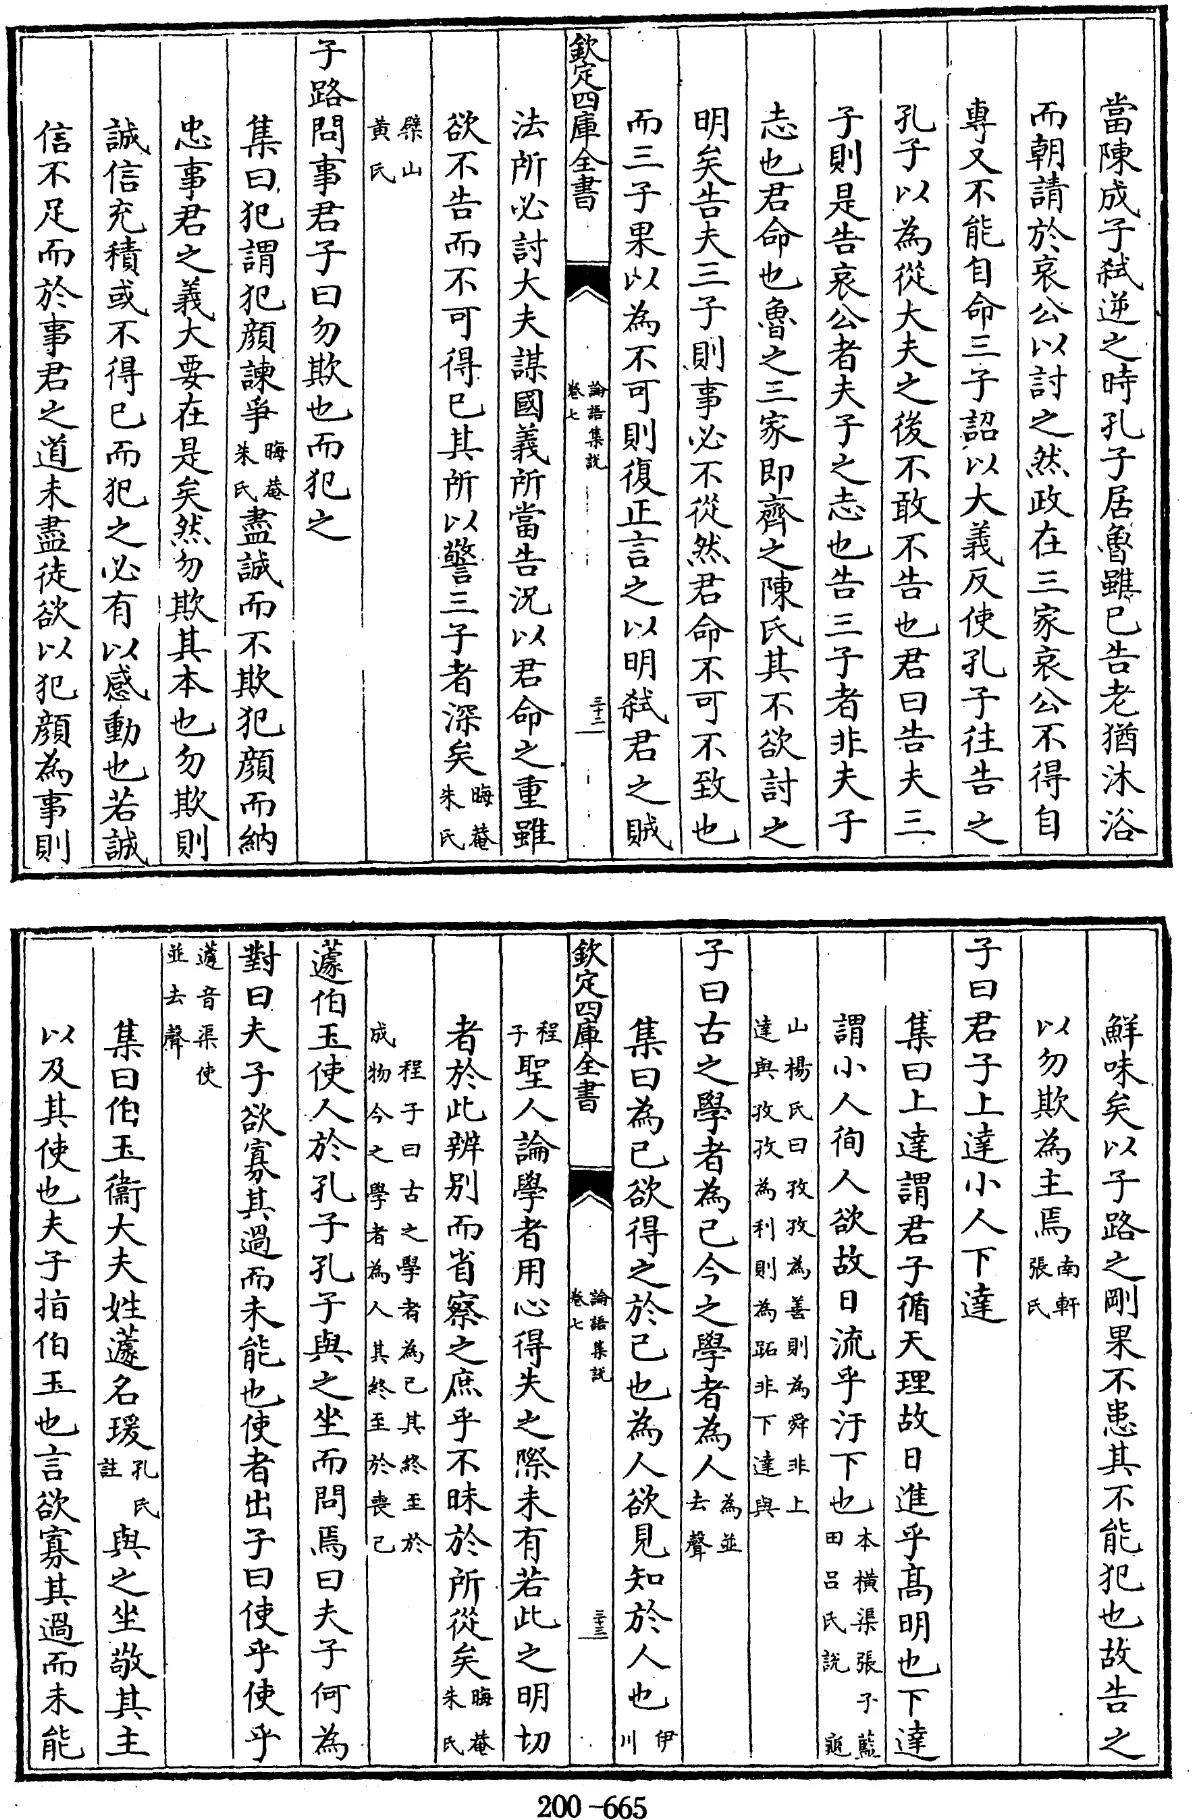 當陳成子弑逆之時孔子居魯雖已告老猶沐浴
而朝請於哀公以討之然政在三家哀公不得自
專又不能自命三子詔以大義反使孔子往告之
孔子以為從大夫之後不敢不告也君曰告夫三
子則是告哀公者夫子之志也告三子者非夫子
志也君命也魯之三家即齊之陳氏其不欲討之
明矣告夫三子則事必不從然君命不可不致也
而三子果以為不可則復正言之以明弑君之賊
欽定四庫全書
論語集說
卷七
三十二
法所必討大夫謀國義所當告況以君命之重雖
欲不告而不可得已其所以警三子者深矣晦菴朱氏
檗山黄氏
子路問事君子曰勿欺也而犯之
集曰犯謂犯顔諫爭晦菴朱氏盡誠而不欺犯顔而納
忠事君之義大要在是矣然勿欺其本也勿欺則
誠信充積或不得已而犯之必有以感動也若誠
信不足而於事君之道未盡徒欲以犯顔為事則
鮮味矣以子路之剛果不患其不能犯也故告之
以勿欺為主焉南軒張氏
子曰君子上達小人下達
集曰上達謂君子循天理故日進乎髙明也下達
謂小人徇人欲故日流乎汙下也本横渠張子藍田吕氏說
龜山楊氏曰孜孜為善則為舜非上達與孜孜為利則為跖非下達與
子曰古之學者為己今之學者為人為並去聲
集曰為己欲得之於己也為人欲見知於人也伊川
欽定四庫全書
論語集說
卷七
三十三
程子聖人論學者用心得失之際未有若此之明切
者於此辨别而省察之庶乎不昧於所從矣晦菴朱氏
程子曰古之學者為己其終至於成物今之學者為人其終至於喪己
蘧伯玉使人於孔子孔子與之坐而問焉曰夫子何為
對曰夫子欲寡其過而未能也使者出子曰使乎使乎
蘧音渠使並去聲
集曰伯玉衞大夫姓蘧名瑗孔氏註與之坐敬其主
以及其使也夫子指伯玉也言欲寡其過而未能
200-665